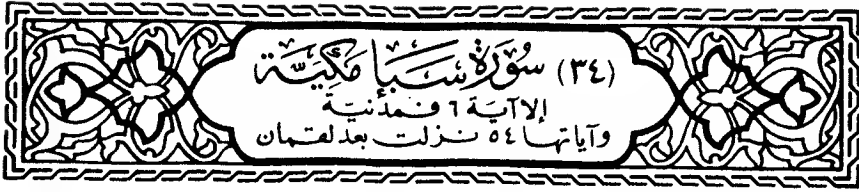 (٣٤) سُورَة سَبَإ مَكِيَّة
إلا آية ٦ فمدنية
وآياتها ٥٤ نزلت بعد لقمان